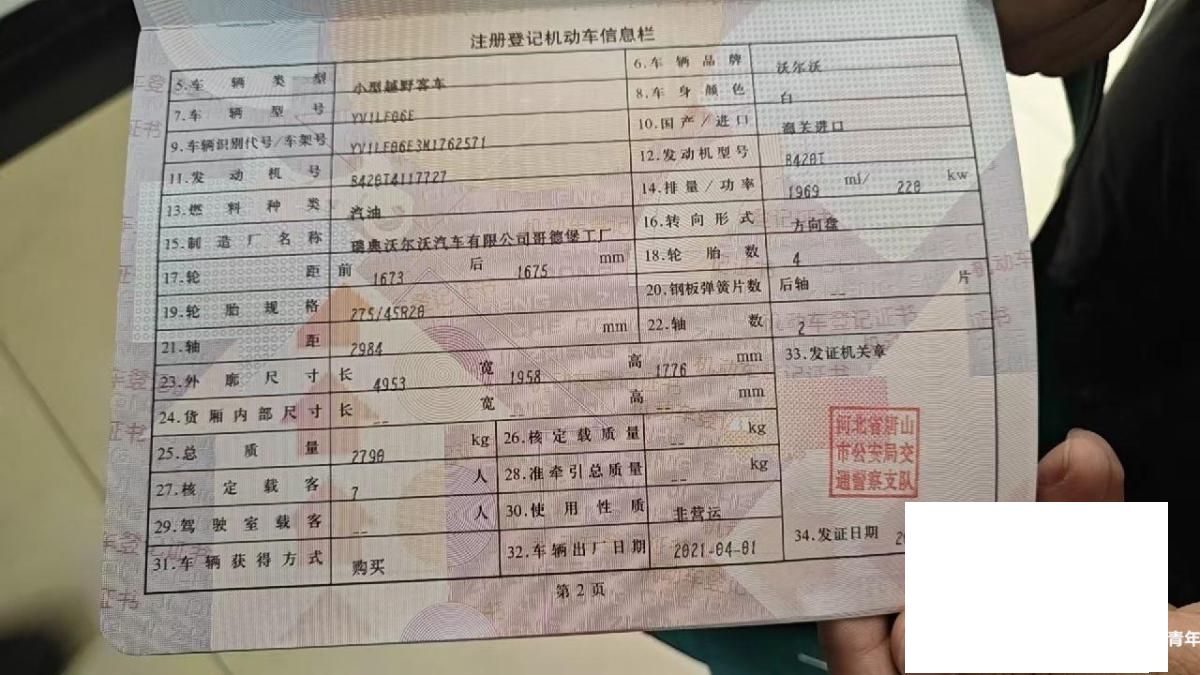 注册登记机动车信息栏
5.车辆类型 小型越野客车 6.车辆品牌 沃尔沃
7.车辆型号 YV1LF06E 8.车身颜色 白
9.车辆识别代号/车架号 YV1LF06E3M1762571 10.国产/进口 海关进口
11.发动机号 B420T4117727 12.发动机型号 B420T
13.燃料种类 汽油 14.排量/功率 1969 ml/ 220 kw
15.制造厂名称 瑞典沃尔沃汽车有限公司哥德堡工厂 16.转向形式 方向盘
17.轮距 前 1673 后 1675 mm 18.轮胎数 4
19.轮胎规格 275/45R20 20.钢板弹簧片数 后轴 -- 片
21.轴距 2984 mm 22.轴数 2
23.外廓尺寸 长 4953 宽 1958 高 1776 mm 33.发证机关章
24.货厢内部尺寸 长 -- 宽 -- 高 -- mm
25.总质量 2790 kg 26.核定载质量 -- kg
27.核定载客 7 人 28.准牵引总质量 -- kg
29.驾驶室载客 -- 人 30.使用性质 非营运
31.车辆获得方式 购买 32.车辆出厂日期 2021-04-01 34.发证日期 20
河北省唐山
市公安局交
通警察支队
第2页
青年